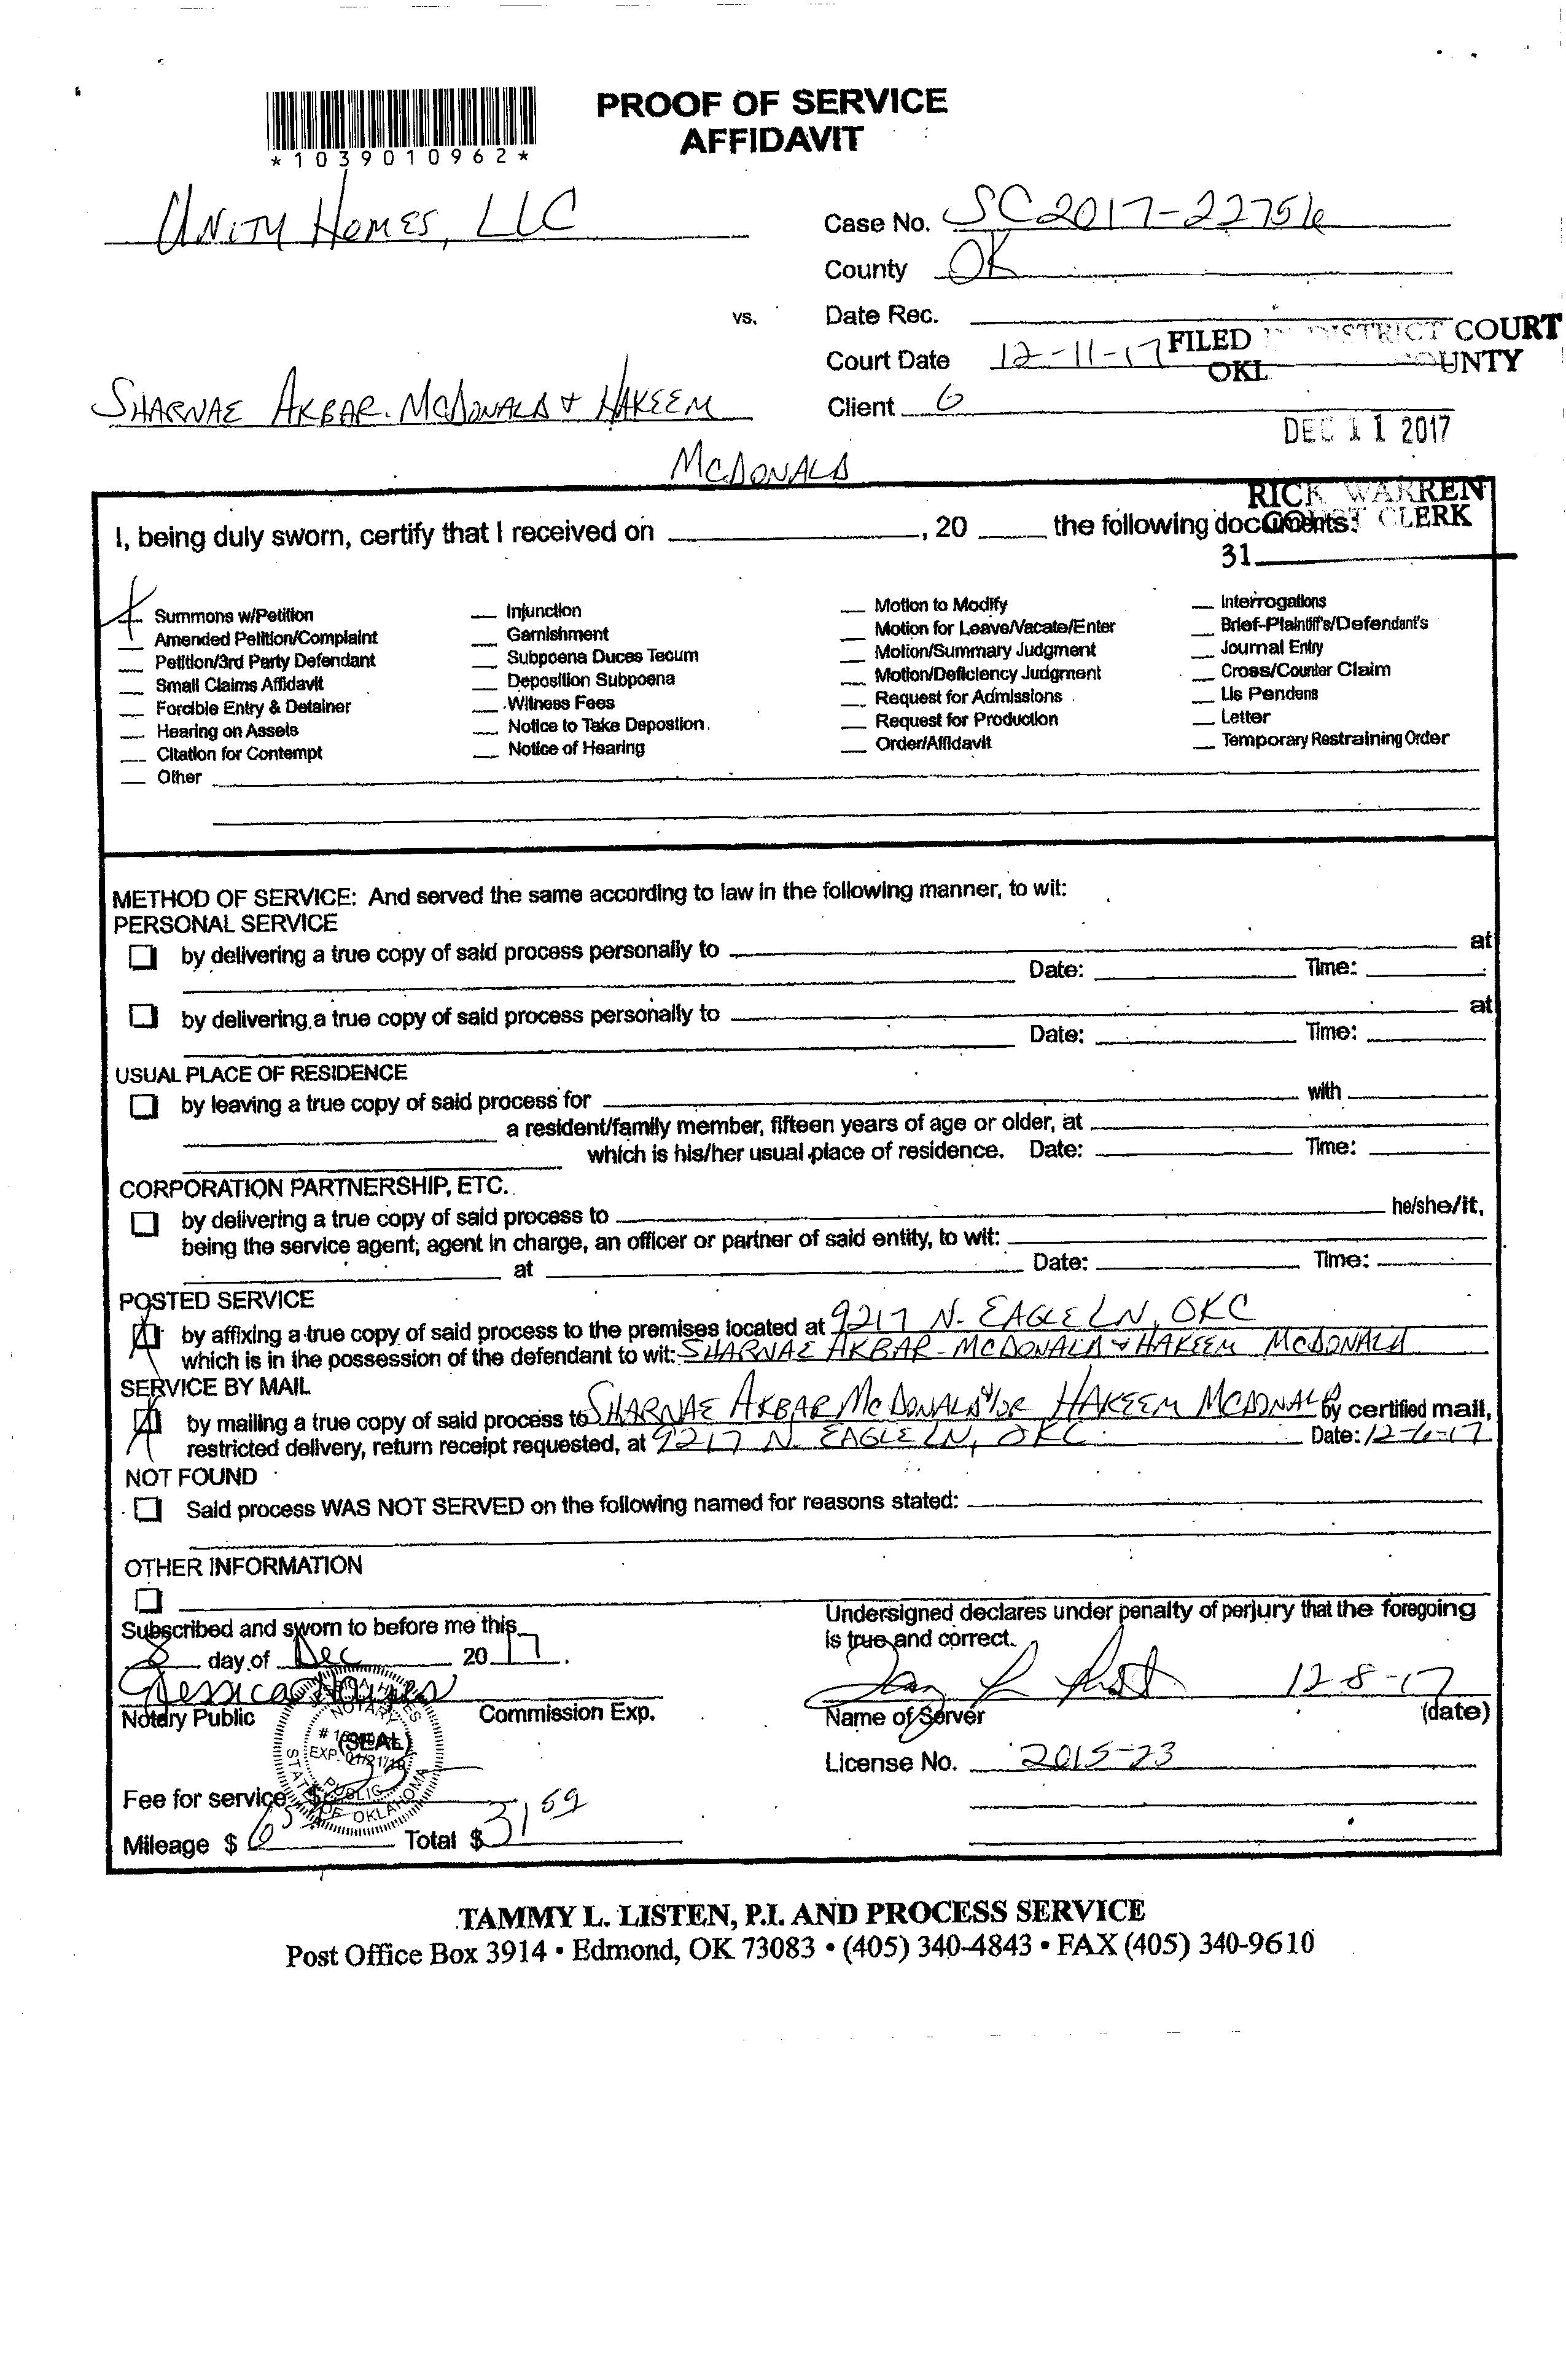 PROOF OF SERVICE
AFFIDAVIT
*1039010962*
UNITY HOMES, LLC
Case No. SC2017-22756
County OK
vs.
Date Rec.
FILED IN DISTRICT COURT
Court Date 12-11-17
OKL COUNTY
SHARNAE AKBAR-MCDONALD + HAKEEM
Client 6
DEC 11 2017
MCDONALD
RICK WARREN
COURT CLERK
I, being duly sworn, certify that I received on , 20 the following documents:
31
Summons w/Petition
Amended Petition/Complaint
Petition/3rd Party Defendant
Small Claims Affidavit
Forcible Entry & Detainer
Hearing on Assets
Citation for Contempt
Other
Injunction
Garnishment
Subpoena Duces Tecum
Deposition Subpoena
Witness Fees
Notice to Take Depostion
Notice of Hearing
Motion to Modify
Motion for Leave/Vacate/Enter
Motion/Summary Judgment
Motion/Deficiency Judgment
Request for Admissions
Request for Production
Order/Affidavit
Interrogations
Brief-Plaintiff's/Defendant's
Journal Entry
Cross/Counter Claim
Lis Pendens
Letter
Temporary Restraining Order
METHOD OF SERVICE: And served the same according to law in the following manner, to wit:
PERSONAL SERVICE
by delivering a true copy of said process personally to at
Date: Time:
by delivering a true copy of said process personally to at
Date: Time:
USUAL PLACE OF RESIDENCE
by leaving a true copy of said process for with
a resident/family member, fifteen years of age or older, at
which is his/her usual place of residence. Date: Time:
CORPORATION PARTNERSHIP, ETC.
by delivering a true copy of said process to he/she/it,
being the service agent; agent in charge, an officer or partner of said entity, to wit:
at Date: Time:
POSTED SERVICE
by affixing a true copy of said process to the premises located at 9217 N. EAGLE LN, OKC
which is in the possession of the defendant to wit: SHARNAE AKBAR-MCDONALD + HAKEEM MCDONALD
SERVICE BY MAIL
by mailing a true copy of said process to SHARNAE AKBAR MCDONALD &/OR HAKEEM MCDONALD by certified mail,
restricted delivery, return receipt requested, at 9217 N. EAGLE LN, OKC Date: 12-6-17
NOT FOUND
Said process WAS NOT SERVED on the following named for reasons stated:
OTHER INFORMATION
Subscribed and sworn to before me this
8 day of Dec 2017.
Jessica Haynes
Notary Public
Commission Exp.
(SEAL)
NOTARY PUBLIC
STATE OF OKLAHOMA
Undersigned declares under penalty of perjury that the foregoing
is true and correct.
12-8-17
Name of Server (date)
License No. 2015-23
Fee for service $
Mileage $ Total $ 31 59
TAMMY L. LISTEN, P.I. AND PROCESS SERVICE
Post Office Box 3914 • Edmond, OK 73083 • (405) 340-4843 • FAX (405) 340-9610